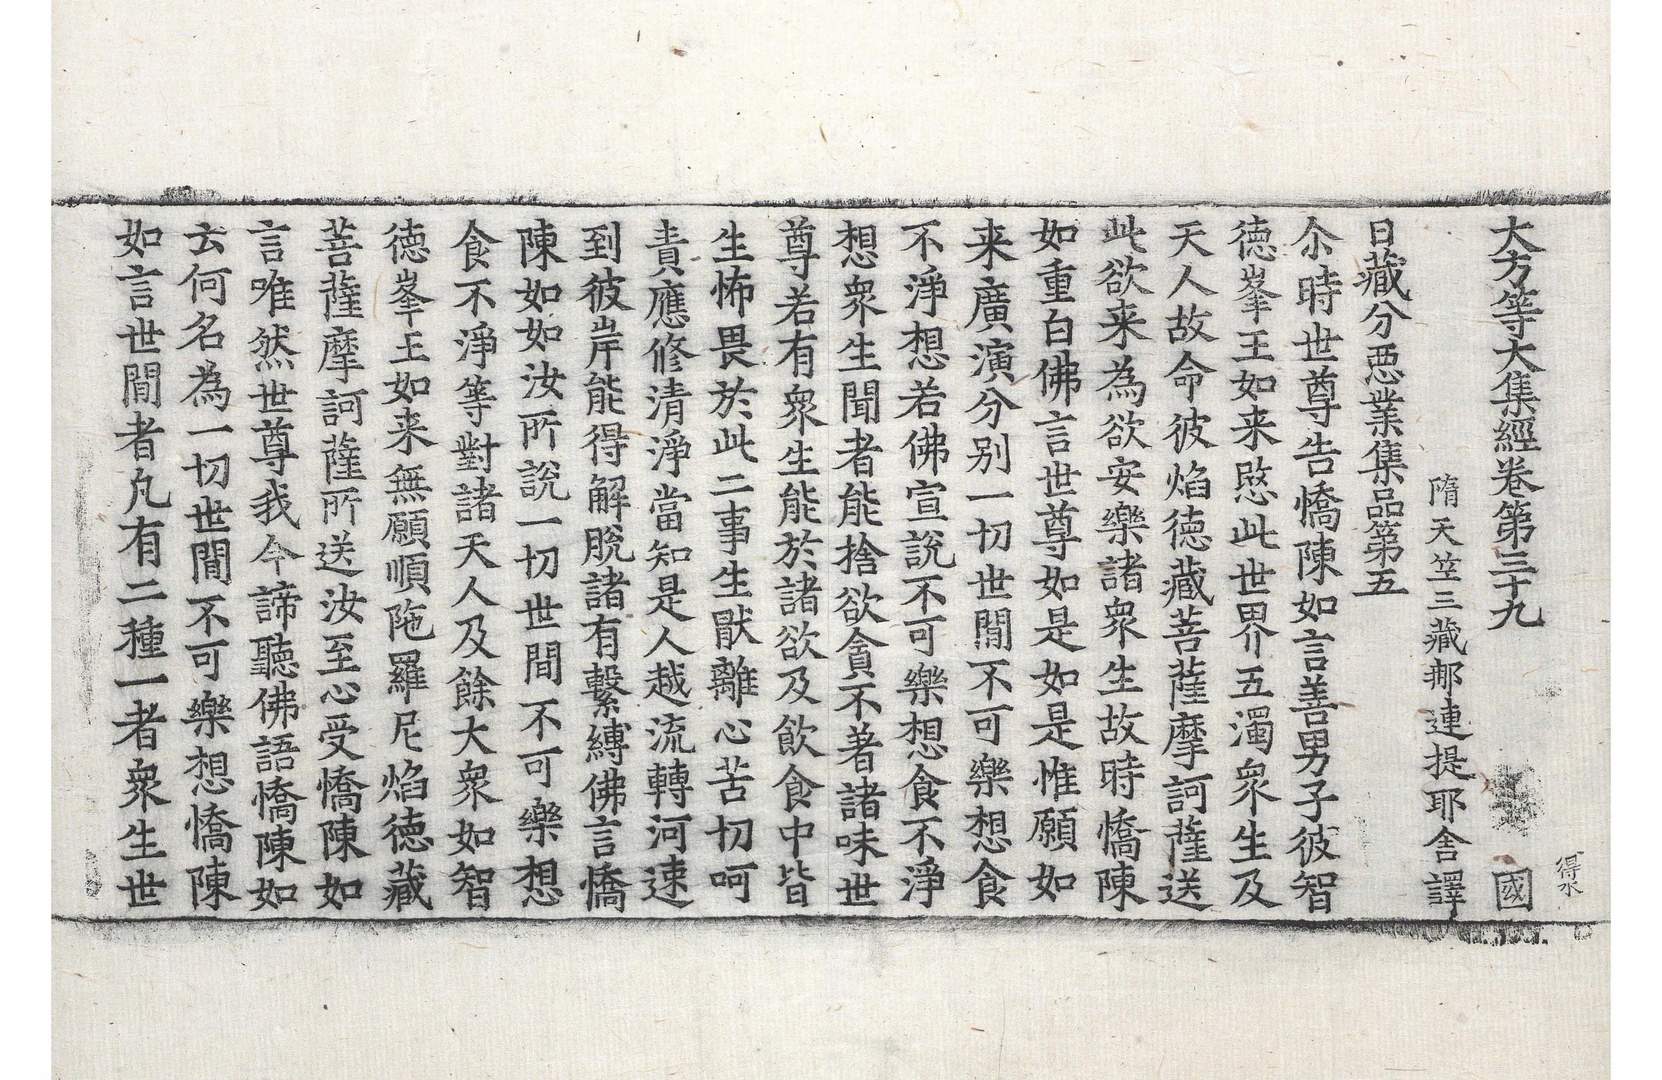 大方等大集經卷第三十九 國
得水
隋天竺三藏那連提耶舍譯
日藏分惡業集品第五
尒時世尊告憍陳如言善男子彼智
德峯王如来愍此世界五濁衆生及
天人故命彼焰德藏菩薩摩訶薩送
此欲来為欲安樂諸衆生故時憍陳
如重白佛言世尊如是如是惟願如
来廣演分别一切世間不可樂想食
不淨想若佛宣說不可樂想食不淨
想衆生聞者能捨欲貪不著諸味世
尊若有衆生能於諸欲及飲食中皆
生怖畏於此二事生猒離心苦切呵
責應修清淨當知是人越流轉河速
到彼岸能得解脫諸有繫縛佛言憍
陳如如汝所說一切世間不可樂想
食不淨等對諸天人及餘大衆如智
德峯王如来無願順陁羅尼焰德藏
菩薩摩訶薩所送汝至心受憍陳如
言唯然世尊我今諦聽佛語憍陳如
云何名為一切世間不可樂想憍陳
如言世間者凡有二種一者衆生世